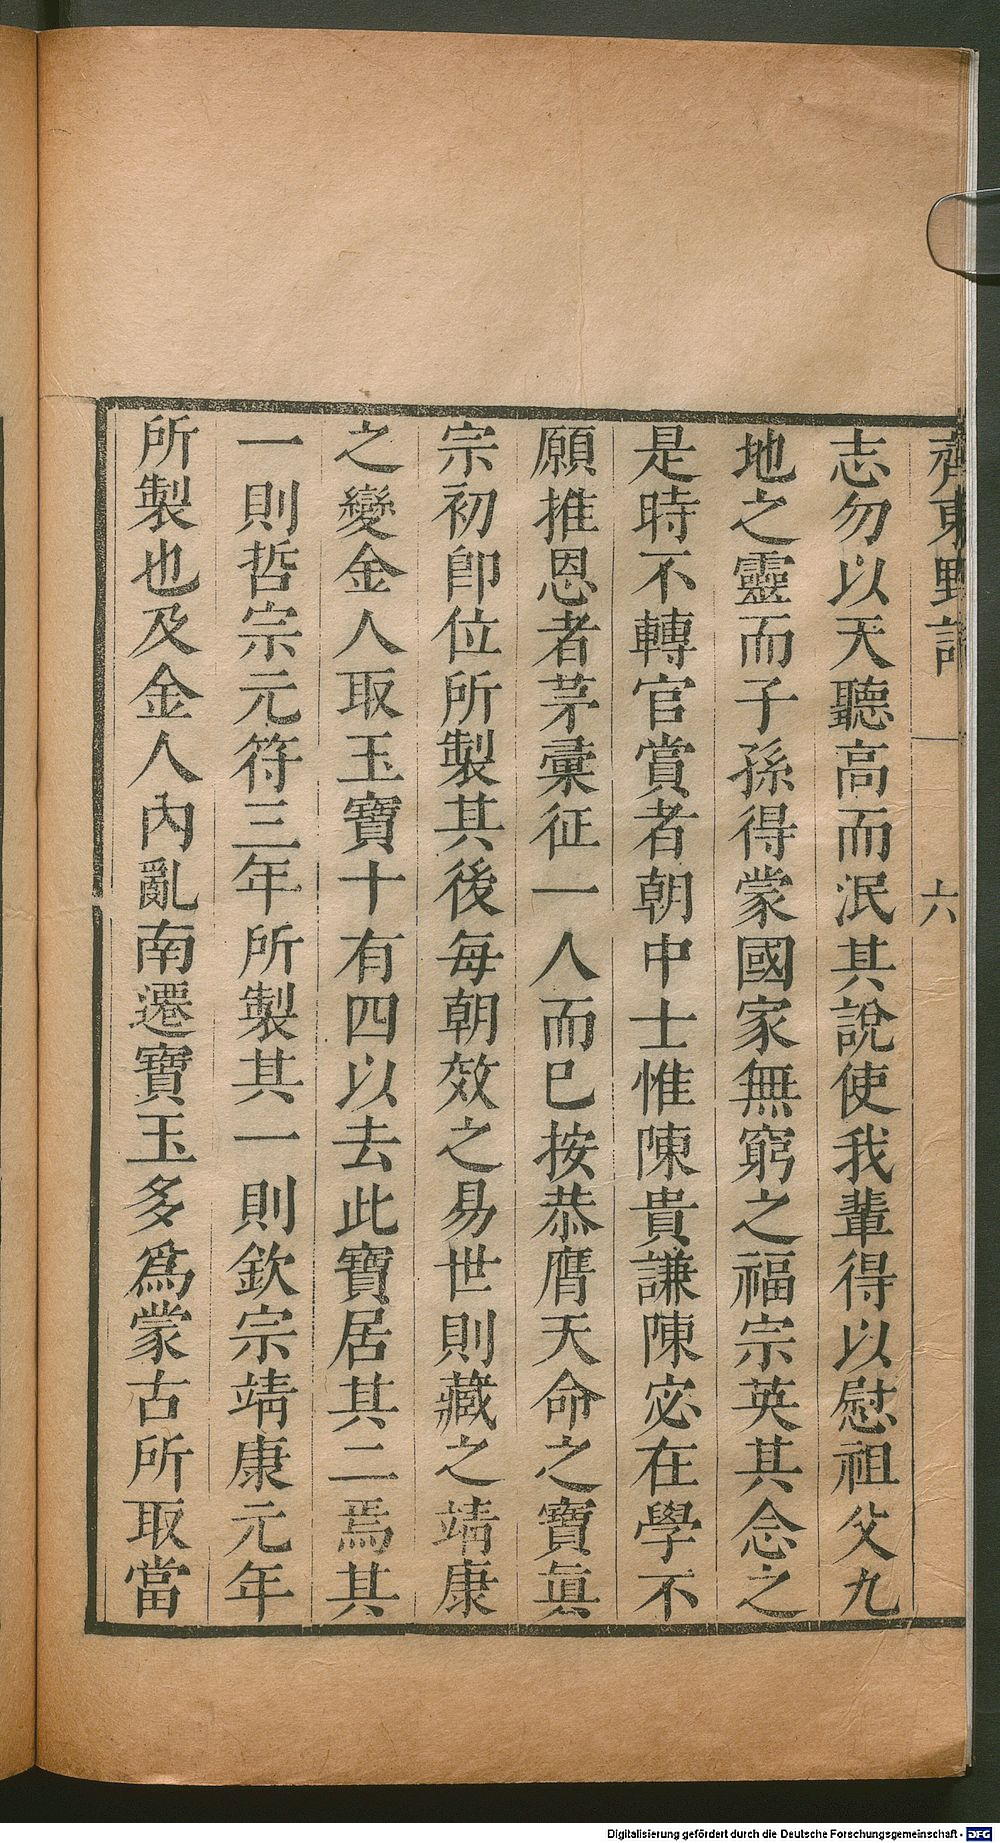 齊東野語
六
志勿以天聽高而泯其說使我輩得以慰祖父九
地之靈而子孫得蒙國家無窮之福宗英其念之
是時不轉官賞者朝中士惟陳貴謙陳宓在學不
願推恩者茅彙征一人而已按恭膺天命之寶眞
宗初卽位所製其後每朝效之易世則藏之靖康
之變金人取玉寶十有四以去此寶居其二焉其
一則哲宗元符三年所製其一則欽宗靖康元年
所製也及金人內亂南遷寶玉多爲蒙古所取當
Digitalisierung gefördert durch die Deutsche Forschungsgemeinschaft - DFG